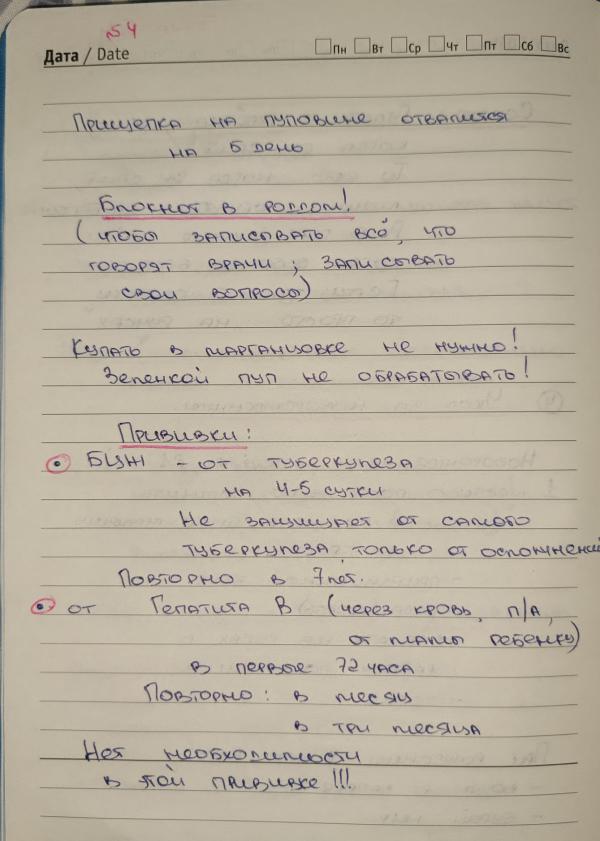 №4
Дата / Date Пн Вт Ср Чт Пт Сб Вс
Прищепка на пуповине отвалится
на 5 день
Блокнот в роддом!
(чтобы записывать всё, что
говорят врачи; записывать
свои вопросы)
Купать в марганцовке не нужно!
Зеленкой пуп не обрабатывать!
Прививки:
БЦЖ - от туберкулеза
на 4-5 сутки
Не защищает от самого
туберкулеза, только от осложнений
Повторно в 7 лет.
от Гепатита В (через кровь, п/а,
от мамы ребенку)
в первые 72 часа
Повторно: в месяц
в три месяца
Нет необходимости
в этой прививке!!!